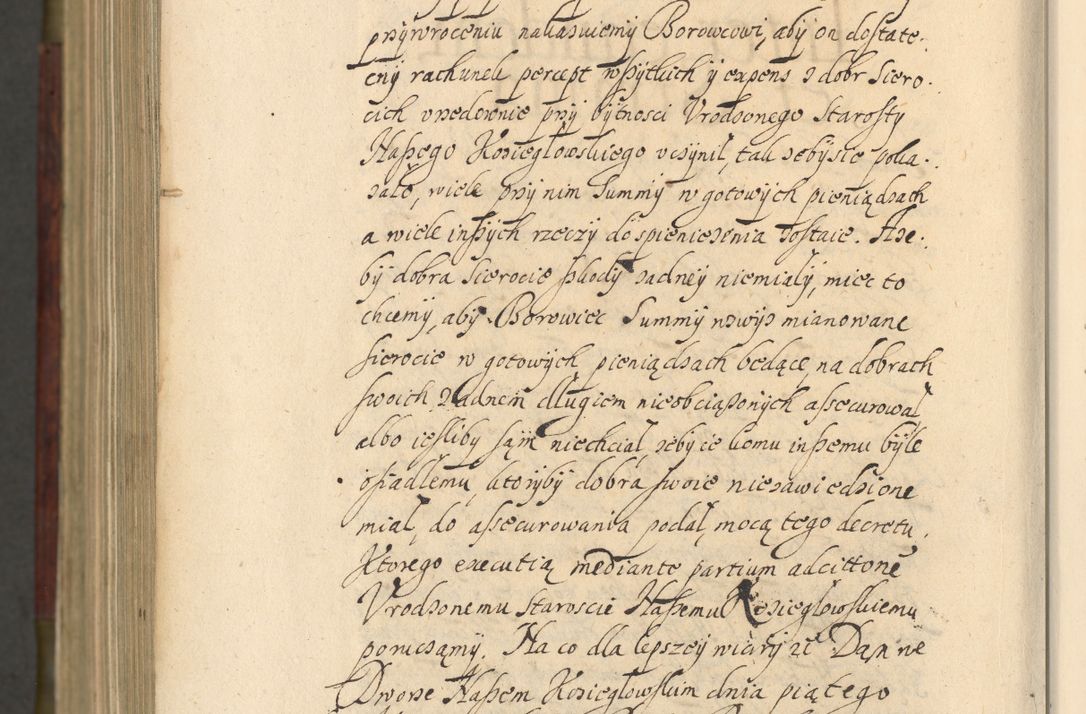 przywroceniu nakazuiemy Borowcowi, aby on dostate-
cny rachunek percept wszytkich y expens z dobr Siero-
cich vrzedownie przy bytnosci Vrodzonego Starosty
Naszego Kozieglowskiego vczynil, tak zeby sie poka-
zało, wiele przy nim Summy w gotowych pieniądzach
a wiele inszych rzeczy do spieniezenia zostaie. Aze-
by dobra Sierocie szkody zadney niemiały, miec to
chcemy, aby Borowiec Summy zwysz mianowane
sierocie w gotowych pieniądzach będące, na dobrach
swoich żadnem długiem nieobciązonych assecurował
albo iesliby sąm niechciał, zeby ie komu inszemu byle
osiadłemu, ktoryby dobra swoie niezawiedzione
miał, do assecurowania podał, mocą tego decretu.
Ktorego executią mediante partium adcittone
Vrodzonemu Staroscie Naszemu Kozieglowskiemu
poruczamy. Na co dla lepszey wiary zc Dan we
Dworze Naszem Kozieglowskim dnia piątego